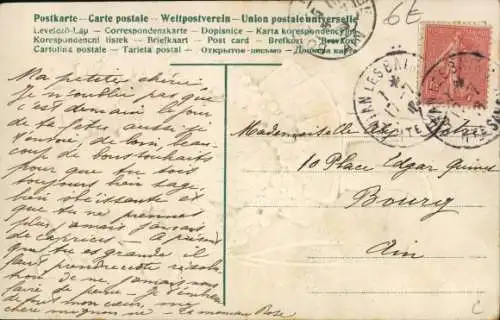 Postkarte - Carte postale - Weltpostverein - Union postale universelle
Levelező-Lap - Correspondenzkarte - Dopisnice - Karta korespondencyjna
Korespondenční lístek - Briefkaart - Post card - Brefkort - Brevkort
Cartolina postale - Tarjeta postal - Открытое письмо - Дописна карта
6E
Ma petite chérie
Je n'oublie pas que
c'est demain le jour
de ta fête aussi je
t'envoie, de loin, beau-
coup de bons souhaits
pour que tu sois
toujours bien sage
bien obéissante et
que tu ne prennes
plus jamais jamais
de caprices - A présent
que tu es grande il
faut prendre cette résolu-
tion de ne jamais nous
faire de peine. Je t'embrasse
de tout mon cœur, ma
chère mignonne - Ta maman Rose
Mademoiselle
10 Place Edgar Quinet
Bourg
Ain
EVIAN LES BAINS
C